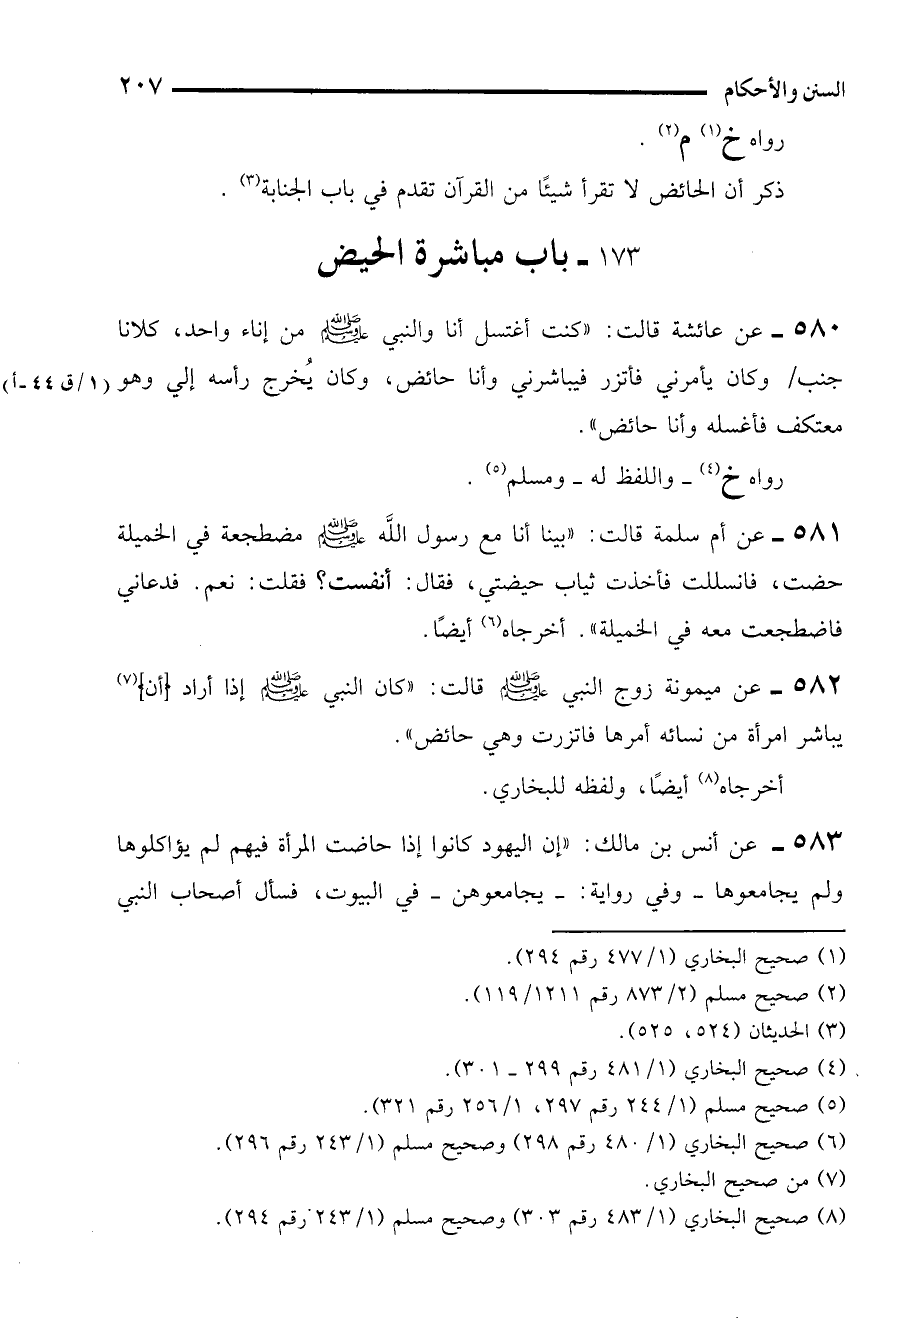 السنن والأحكام ٢٠٧
رواه خ(١) م(٢) .
ذكر أن الحائض لا تقرأ شيئًا من القرآن تقدم في باب الجنابة(٣) .
١٧٣ ـ باب مباشرة الحيض
٥٨٠ ـ عن عائشة قالت: «كنت أغتسل أنا والنبي ﷺ من إناء واحد، كلانا
جنب/ وكان يأمرني فأتزر فيباشرني وأنا حائض، وكان يُخرج رأسه إلي وهو (١/ق٤٤-أ)
معتكف فأغسله وأنا حائض».
رواه خ(٤) ـ واللفظ له ـ ومسلم(٥) .
٥٨١ ـ عن أم سلمة قالت: «بينا أنا مع رسول اللَّه ﷺ مضطجعة في الخميلة
حضت، فانسللت فأخذت ثياب حيضتي، فقال: أنفست؟ فقلت: نعم. فدعاني
فاضطجعت معه في الخميلة». أخرجاه(٦) أيضًا.
٥٨٢ ـ عن ميمونة زوج النبي ﷺ قالت: «كان النبي ﷺ إذا أراد [أن](٧)
يباشر امرأة من نسائه أمرها فاتزرت وهي حائض».
أخرجاه(٨) أيضًا، ولفظه للبخاري.
٥٨٣ ـ عن أنس بن مالك: «إن اليهود كانوا إذا حاضت المرأة فيهم لم يؤاكلوها
ولم يجامعوها ـ وفي رواية: ـ يجامعوهن ـ في البيوت، فسأل أصحاب النبي
(١) صحيح البخاري (١/ ٤٧٧ رقم ٢٩٤).
(٢) صحيح مسلم (٢/ ٨٧٣ رقم ١٢١١/ ١١٩).
(٣) الحديثان (٥٢٤، ٥٢٥).
(٤) صحيح البخاري (١/ ٤٨١ رقم ٢٩٩ ـ ٣٠١).
(٥) صحيح مسلم (١/ ٢٤٤ رقم ٢٩٧، ١/ ٢٥٦ رقم ٣٢١).
(٦) صحيح البخاري (١/ ٤٨٠ رقم ٢٩٨) وصحيح مسلم (١/ ٢٤٣ رقم ٢٩٦).
(٧) من صحيح البخاري.
(٨) صحيح البخاري (١/ ٤٨٣ رقم ٣٠٣) وصحيح مسلم (١/ ٢٤٣ رقم ٢٩٤).